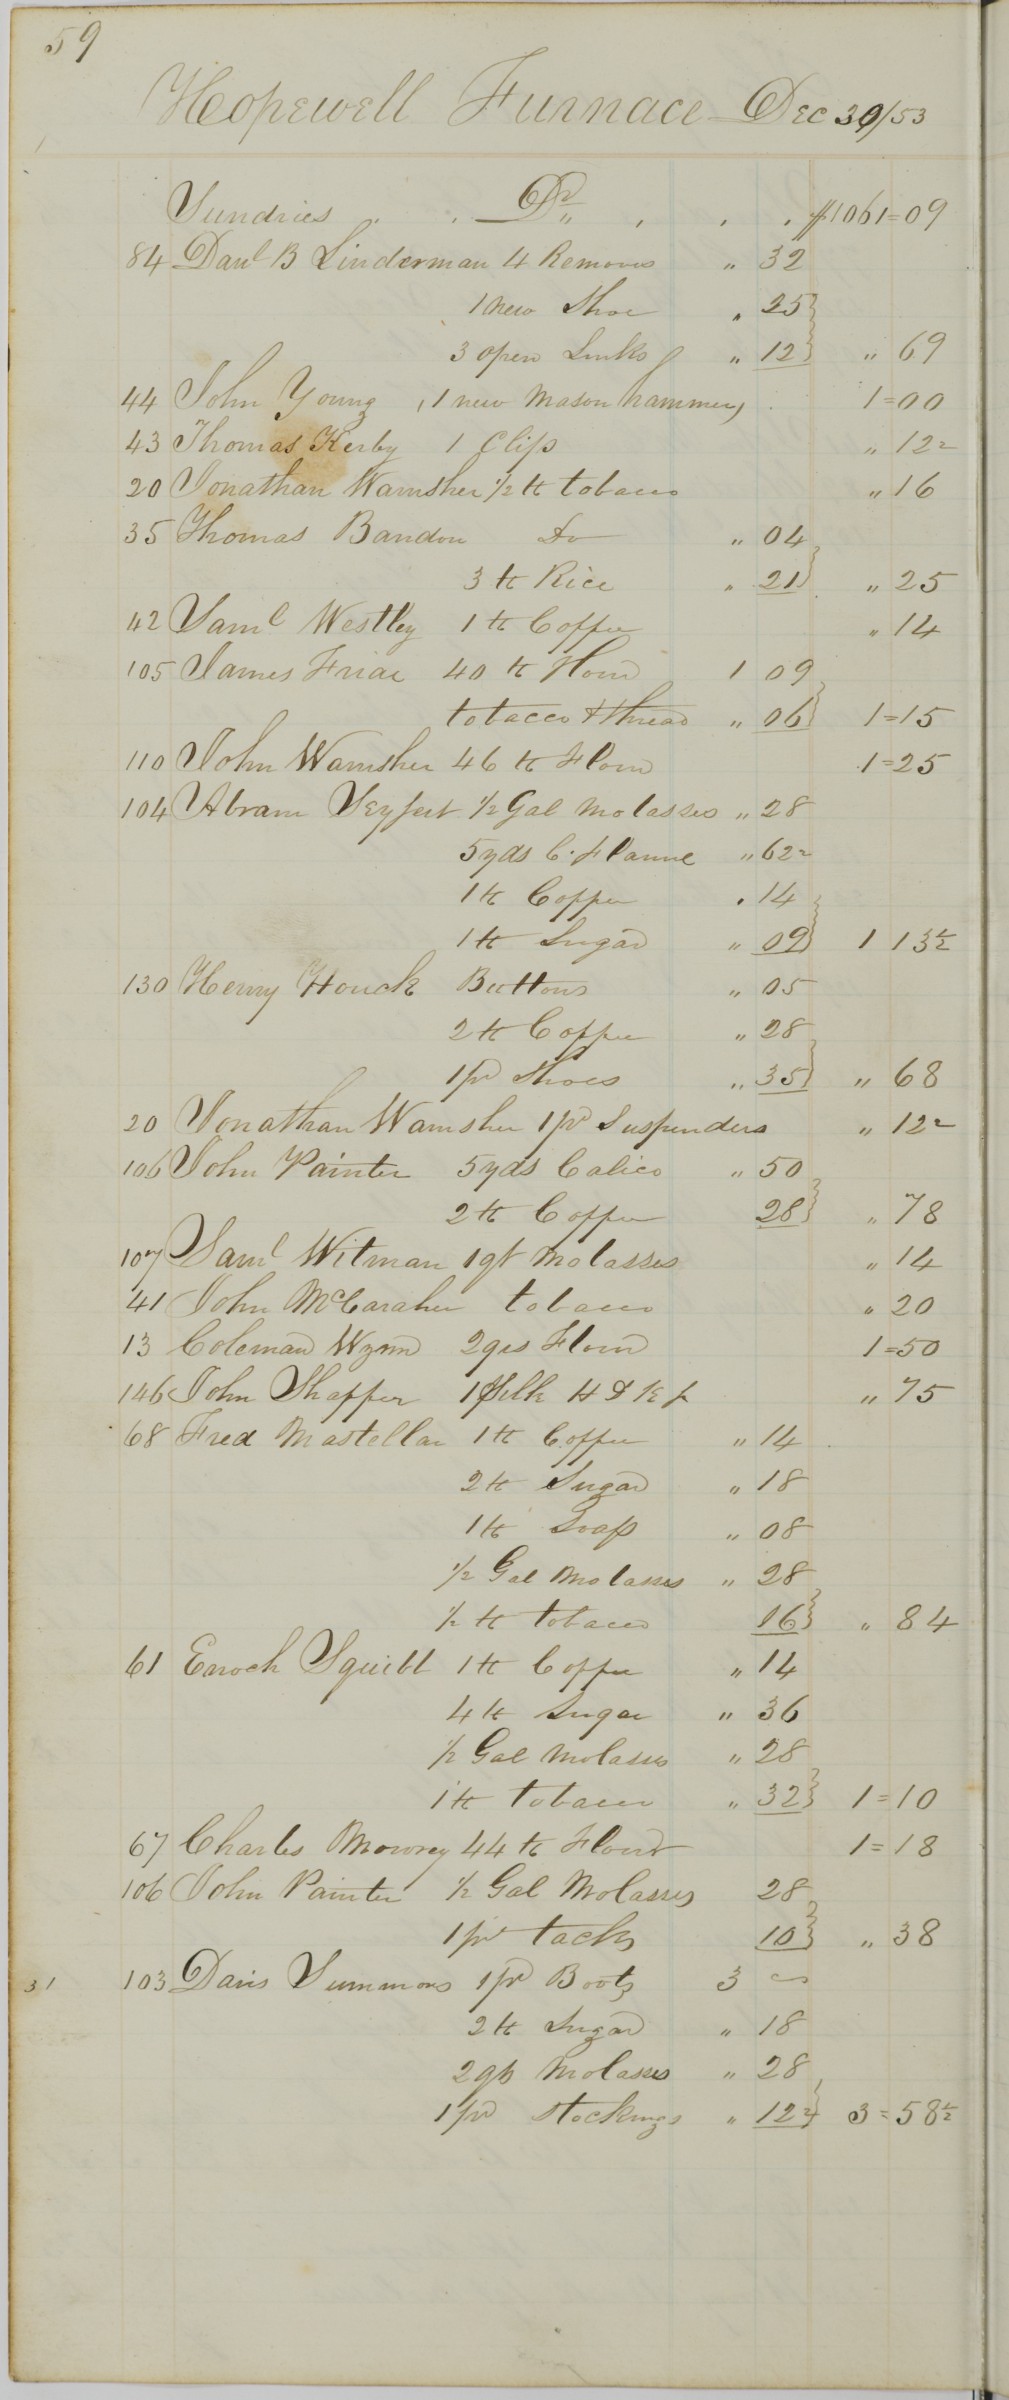 59
Hopewell Furnace Dec 30/53
Sundries " . Dr " , . . $1061=09
84 Danl B Linderman 4 Removes " 32
1 new Shoe " 25
3 open Links " 12 " 69
44 John Young , 1 new Mason hammer, 1=00
43 Thomas Kerby 1 Clip " 12 2
20 Jonathan Wamsher 1/2 ℔ tobacco " 16
35 Thomas Bandon Do " 04
3 ℔ Rice " 21 " 25
42 Saml Westley 1 ℔ Coffee " 14
105 James Friar 40 ℔ Flour 1 09
tobacco & thread " 06 1=15
110 John Wamsher 46 ℔ Flour 1=25
104 Abram Seyfert 1/2 Gal Molasses " 28
5 yds C. Flannel " 62 2
1 ℔ Coffee " 14
1 ℔ Sugar " 09 1 13 1/2
130 Henry Houck Buttons " 05
2 ℔ Coffee " 28
1 pr Shoes " 35 " 68
20 Jonathan Wamsher 1 pr Suspenders " 12 2
106 John Painter 5 yds Calico " 50
2 ℔ Coffee 28 " 78
107 Saml Witman 1 qt Molasses " 14
41 John McCaraher tobacco " 20
13 Coleman Wynn 2 qrs Flour 1=50
146 John Shaffer 1 Silk H D K f " 75
68 Fred Mastellar 1 ℔ Coffee " 14
2 ℔ Sugar " 18
1 ℔ Soap " 08
1/2 Gal Molasses " 28
1/2 ℔ tobacco 16 " 84
61 Enoch Squibb 1 ℔ Coffee " 14
4 ℔ Sugar " 36
1/2 Gal Molasses " 28
1 ℔ tobacco " 32 1=10
67 Charles Mowrey 44 ℔ Flour 1=18
106 John Painter 1/2 Gal Molasses 28
1 pr tacks 10 " 38
31 103 Davis Summons 1 pr Boots 3 "
2 ℔ Sugar " 18
2 qts Molasses " 28
1 pr Stockings " 12 2 3=58 1/2